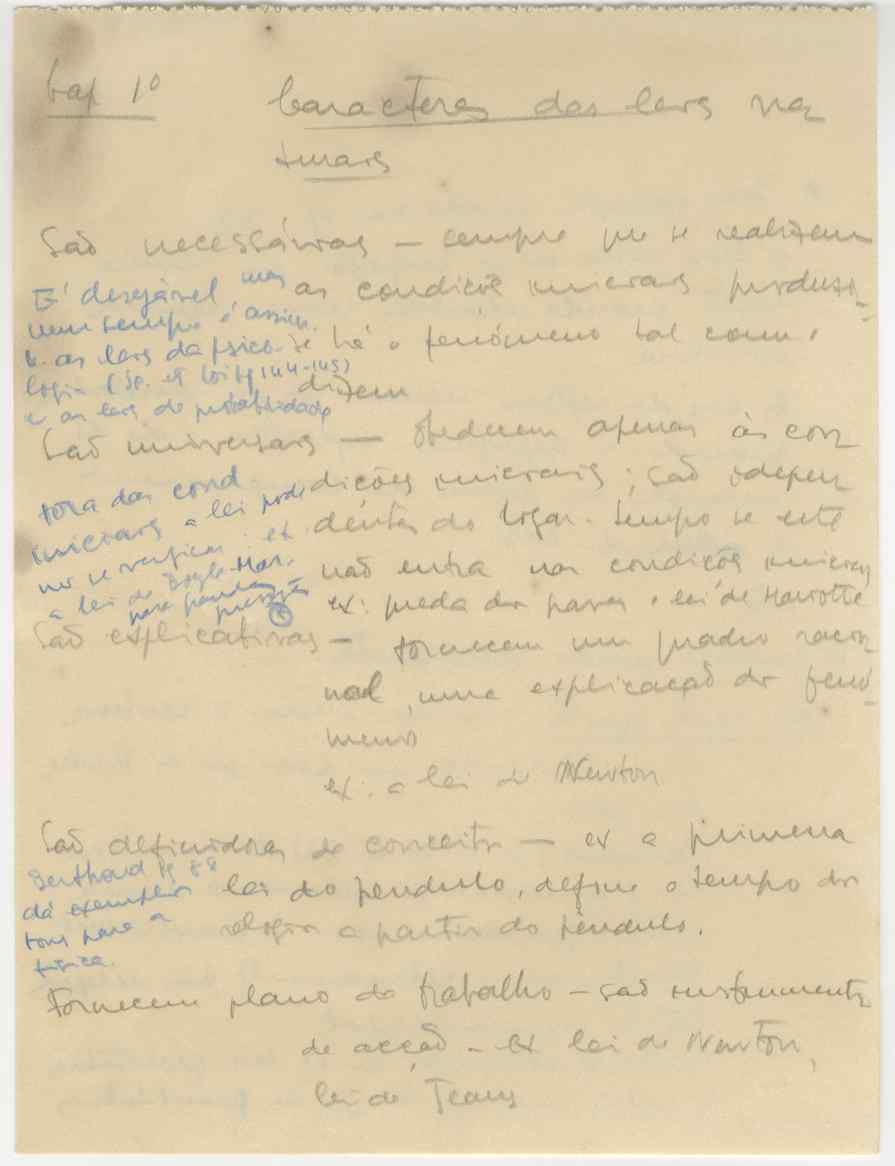 Cap 1º
Caracteres das leis na
turais
São necessárias — sempre que se realizem
as condições iniciais produzi-
se há o fenómeno tal como
dizem
É desejável mas
nem sempre é assim.
as leis da psico-
logia (Sp. et Loi pg 144-145)
e as leis de probabilidade
São universais — obedecem apenas às con
dições iniciais; são indepen
dentes do lugar. tempo se este
não entra nas condições iniciais
ex: queda dos graves e lei de Mariotte
fora das cond
iniciais a lei pode
não se verificar. ex
a lei de Boyle-Mar.
para grandes
pressões
São explicativas — fornecem um quadro racio
nal, uma explicação do fenó-
meno
ex. a lei de Newton
São definidoras de conceitos — ex a primeira
lei do pendulo, define o tempo do
relógio a partir do pêndulo.
Berthoud pg 88
dá exemplos
bons para a
física.
Fornecem plano de trabalho — são instrumentos
de acção — ex lei de Newton,
lei de Jeans